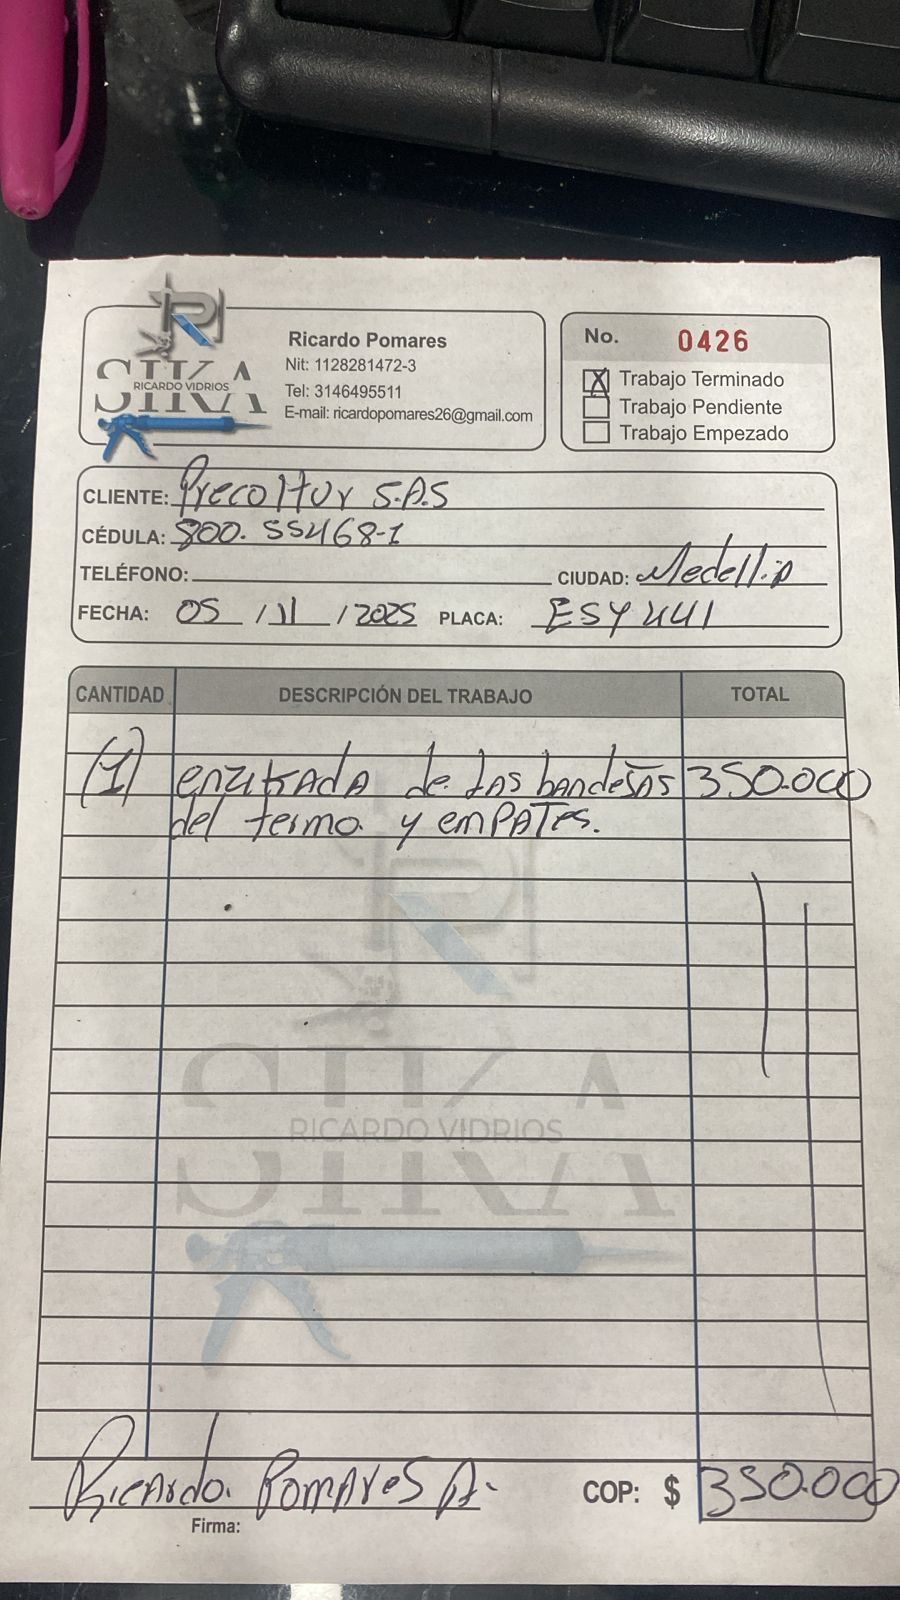 Ricardo Pomares
Nit: 1128281472-3
Tel: 3146495511
E-mail: ricardopomares26@gmail.com
SIKA
RICARDO VIDRIOS
No. 0426
X Trabajo Terminado
Trabajo Pendiente
Trabajo Empezado
CLIENTE: Precoltur S.A.S
CÉDULA: 800. 554468-1
TELÉFONO: CIUDAD: Medellin
FECHA: 05 / 11 / 2025 PLACA: ESY441
CANTIDAD DESCRIPCIÓN DEL TRABAJO TOTAL
(1) enzikada de las bandejas 350.000
del termo y empates.
SIKA
RICARDO VIDRIOS
Ricardo Pomares A. COP: $ 350.000
Firma: